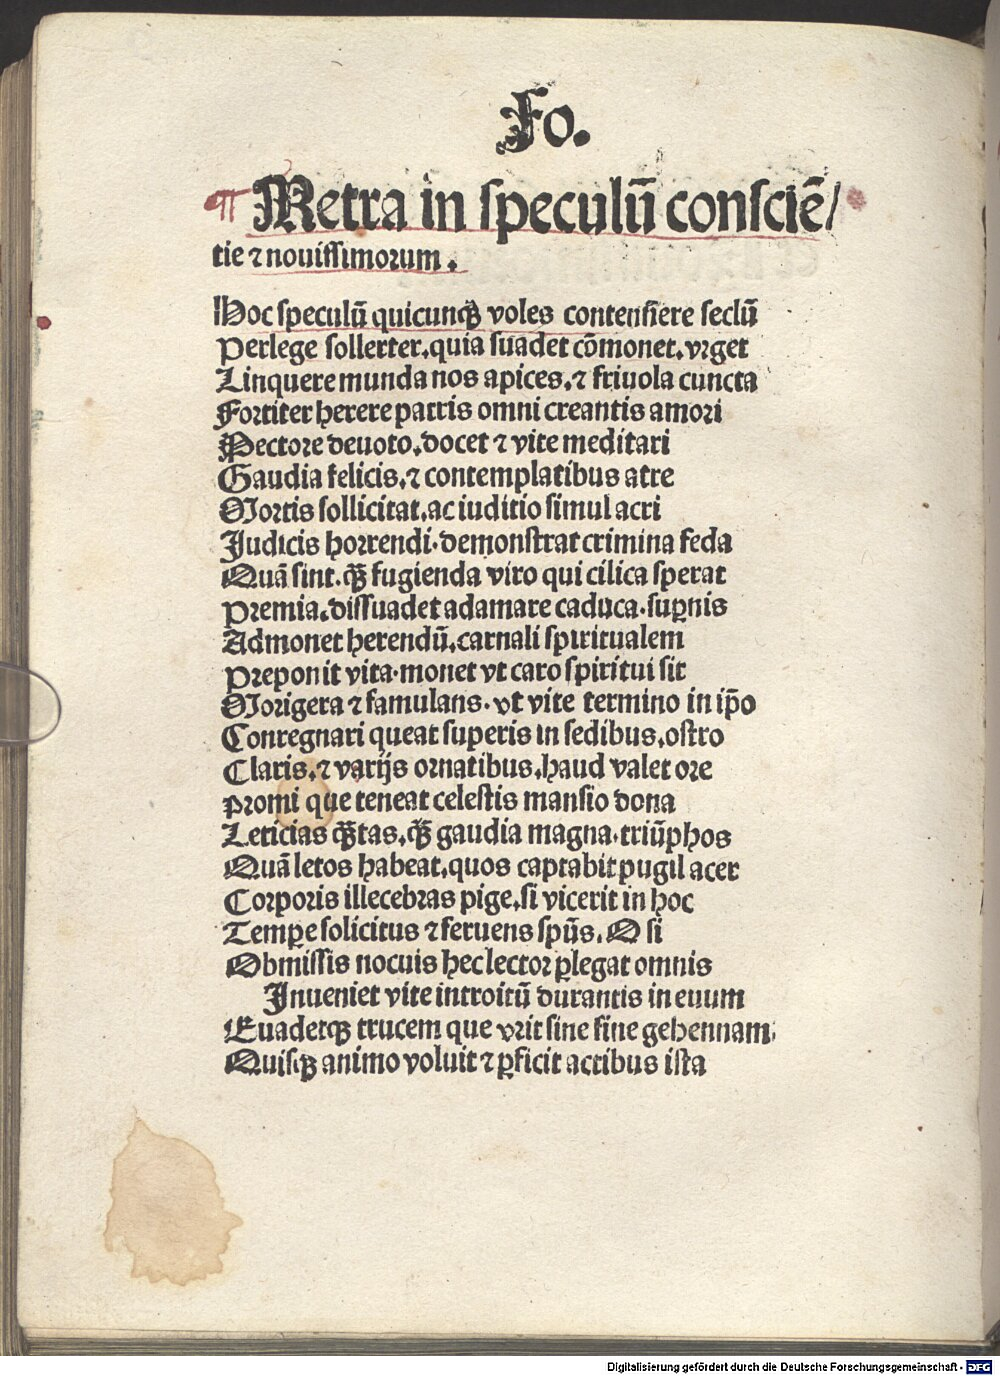 Fo.
¶ Metra in speculū consciē/
tie ⁊ nouissimorum.
Hoc speculū quicunqꝫ voles contensiere seclū
Perlege sollerter.quia suadet cōmonet.vrget
Linquere munda nos apices.⁊ friuola cuncta
Fortiter herere patris omni creantis amori
Pectore deuoto.docet ⁊ vite meditari
Gaudia felicis.⁊ contemplatibus atre
Mortis sollicitat.ac iuditio simul acri
Judicis horrendi.demonstrat crimina feda
Quā sint.qꝫ fugienda viro qui cilica sperat
Premia.dissuadet adamare caduca.suꝑnis
Admonet herendū.carnali spiritualem
Preponit vita.monet vt caro spiritui sit
Morigera ⁊ famulans.vt vite termino in ip̄o
Conregnari queat superis in sedibus.ostro
Claris.⁊ varijs ornatibus.haud valet ore
Promi que teneat celestis mansio dona
Leticias qꝫtas.qꝫ gaudia magna.triūphos
Quā letos habeat.quos captabit pugil acer
Corporis illecebras pige.si vicerit in hoc
Temꝑe solicitus ⁊ feruens spūs. O si
Obmissis nocuis hec lector ꝑlegat omnis
Inueniet vite introitū durantis in euum
Euadetqꝫ trucem que vrit sine fine gehennam.
Quisqꝫ animo voluit ⁊ ꝑficit actibus ista
Digitalisierung gefördert durch die Deutsche Forschungsgemeinschaft - DFG